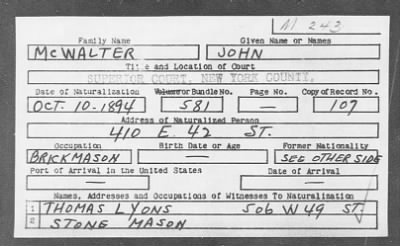 M 243
Family Name Given Name or Names
McWALTER JOHN
Title and Location of Court
SUPERIOR COURT, NEW YORK COUNTY.
Date of Naturalization Volume or Bundle No. Page No. Copy of Record No.
OCT. 10-1894 581 — 107
Address of Naturalized Person
410 E. 42 ST.
Occupation Birth Date or Age Former Nationality
BRICKMASON — SEE OTHER SIDE
Port of Arrival in the United States Date of Arrival
— —
Names, Addresses and Occupations of Witnesses To Naturalization
1 THOMAS LYONS 506 W 49 ST.
2 STONE MASON